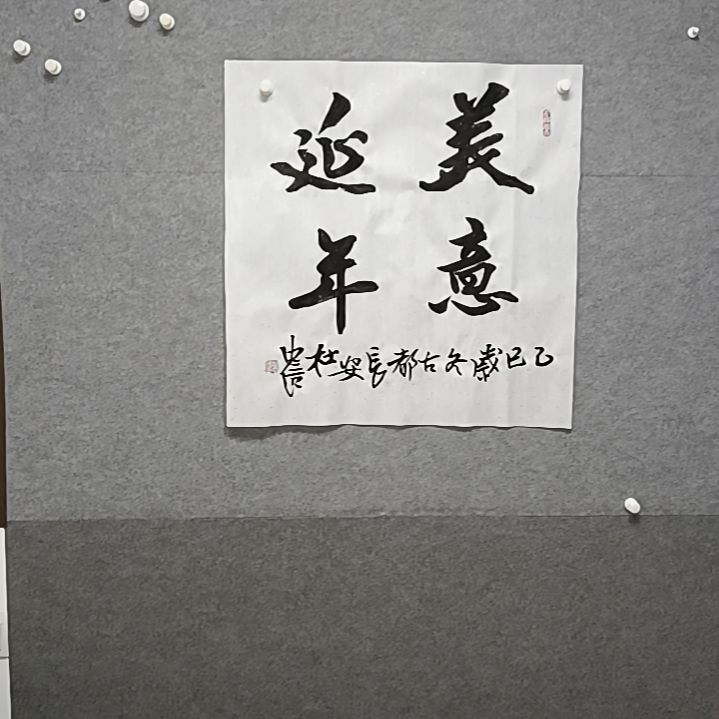 美意
延年
乙巳歲冬古都長安杜忠信